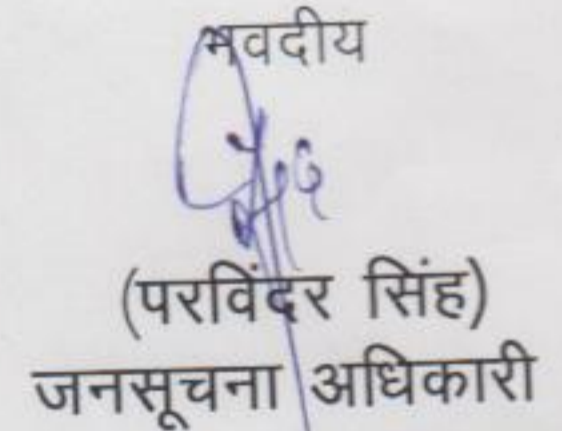 भवदीय
(परविंदर सिंह)
जनसूचना अधिकारी